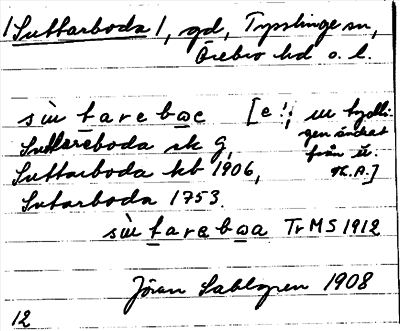 /Suttarboda/, gd, Tysslinge sn,
Örebro hd o. l.
sùtarebωe [e!, ur tydli-
gen ändrat
Suttareboda sk G, från
Suttarboda kb 1906, K.A.]
Sutarboda 1753.
sùtarebωa Tr MS 1912
Jöran Sahlgren 1908
12